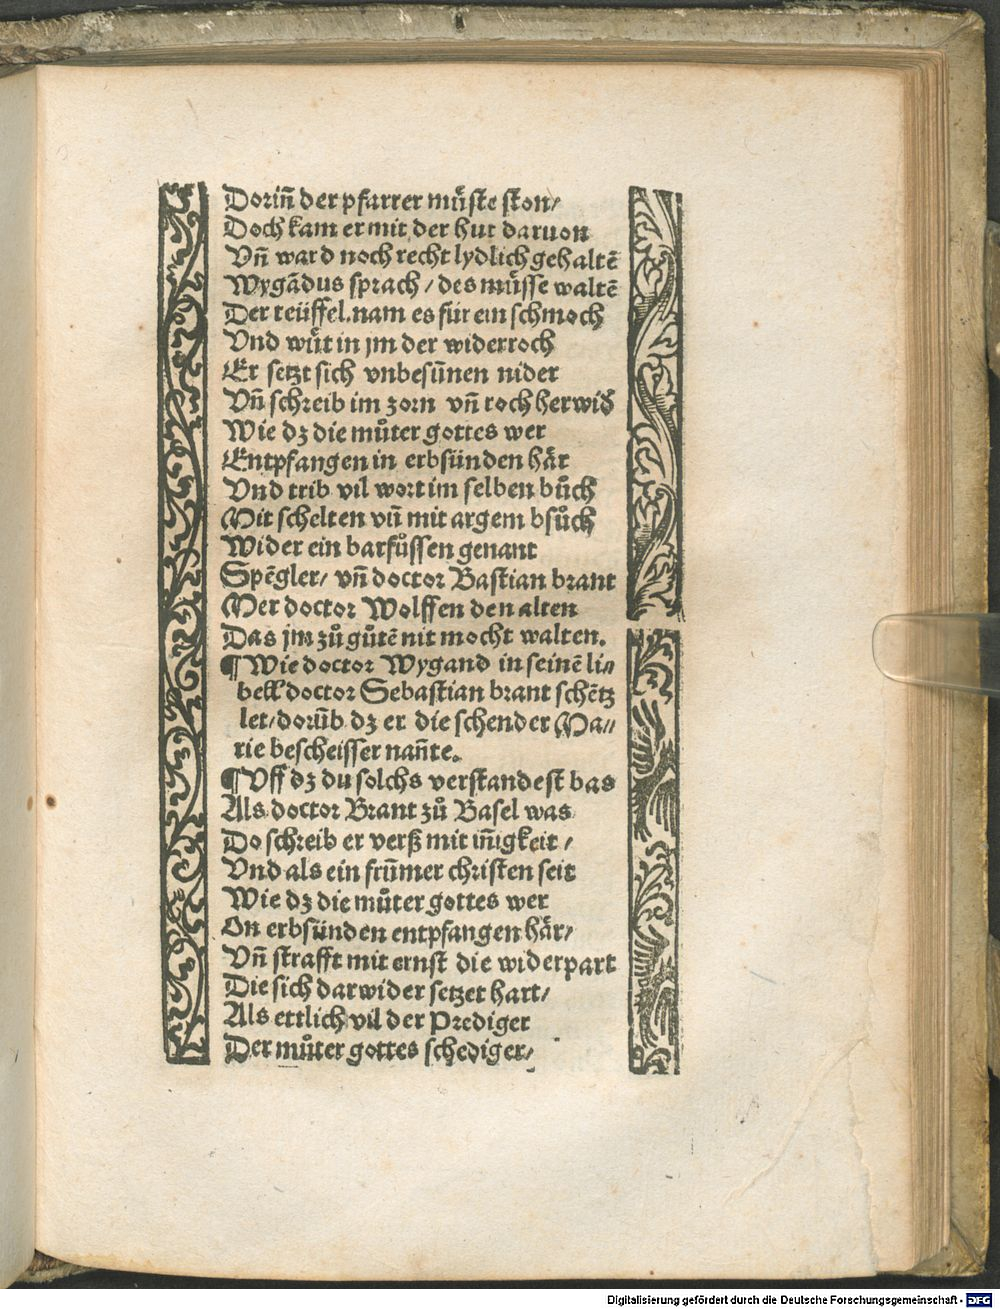 Dorin̄ der pfarrer müſte ſton/
Doch kam er mit der hut daruon
Vn̄ ward noch recht lydlich gehaltē
Wygādus ſprach / des müſſe waltē
Der teüffel. nam es für ein ſchmoch
Vnd wůt in jm der widerroch
Er ſetzt ſich vnbeſūnen nider
Vn̄ ſchreib im zorn vn̄ roch herwid
Wie dz die můter gottes wer
Entpfangen in erbſünden här
Vnd trib vil wort im ſelben bůch
Mit ſchelten vn̄ mit argem bſůch
Wider ein barfůſſen genant
Spēgler/ vn̄ doctor Baſtian brant
Mer doctor Wolffen den alten
Das jm zů gůtē nit mocht walten.
¶ Wie doctor Wygand in ſeinē li⸗
bell doctor Sebaſtian brant ſchētz
let/ dorūb dz er die ſchender Ma⸗
rie beſcheiſſer nan̄te.
¶ Vff dz du ſolchs verſtandeſt bas
Als doctor Brant zů Baſel was
Do ſchreib er verß mit in̄igkeit /
Vnd als ein frūmer chriſten ſeit
Wie dz die můter gottes wer
On erbſünden entpfangen här/
Vn̄ ſtrafft mit ernſt die widerpart
Die ſich darwider ſetzet hart/
Als ettlich vil der Prediger
Der můter gottes ſchediger/
Digitalisierung gefördert durch die Deutsche Forschungsgemeinschaft - DFG